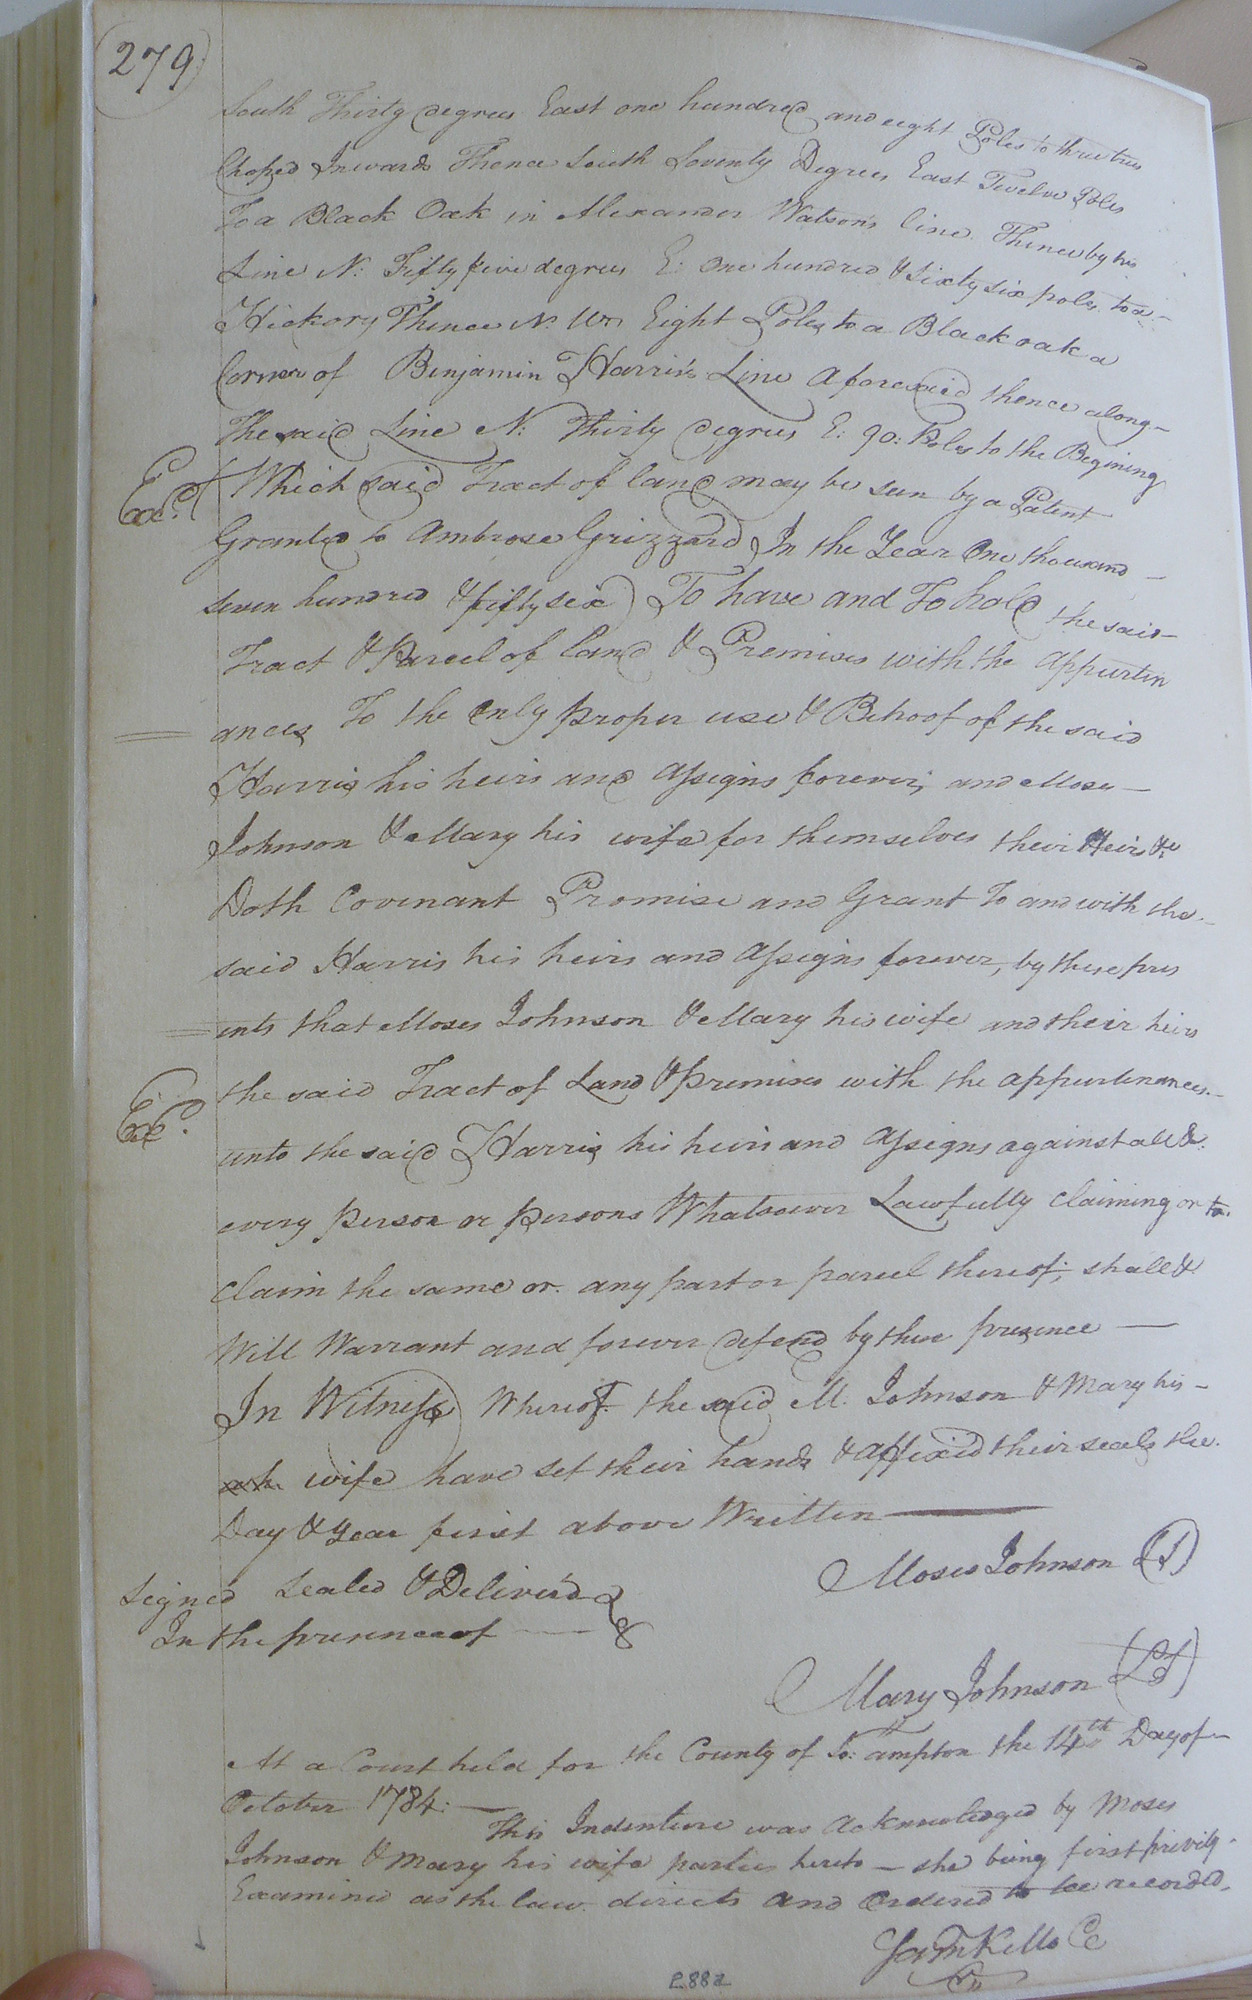 279
South Thirty degrees East one hundred and eight Poles to three trees
Choped Inwards Thence South Seventy Degrees East Twelve Poles
To a Black Oak in Alexander Watson's line Thence by his
Line N: Fifty five degrees E: One hundred & Sixty six poles to a
Hickory Thence N: Wt. Eight Poles to a Black oak a
Corner of Benjamin Harris's Line Aforesaid thence along
The said Line N: Thirty degrees E: 90: Poles to the Begining
Exd. (Which said Tract of land may be seen by a Patent
Granted to Ambrose Grizzard In the Year One thousand
seven hundred & fifty six) To have and To hold the said
Tract & Parcel of land & Premises with the appurtin
ances To the only proper use & Behoof of the said
Harris his heirs and Assigns forever; and Moses
Johnson & Mary his wife for themselves their Heirs &c
Doth Covenant Promise and Grant To and with the
said Harris his heirs and Assigns forever, by these pres
ents that Moses Johnson & Mary his wife and their heirs
the said Tract of Land & premises with the appurtenances
Exd. unto the said Harris his heirs and Assigns against all &
every person or persons Whatsoever Lawfully Claiming or to
Claim the same or any part or parcel thereof; shall &
Will Warrant and forever defend by these presence
In Witness Whereof the said M. Johnson & Mary his
wife have set their hands & affixed their seals the
Day & Year first above Written
Moses Johnson (LS)
Signed Sealed & Deliver'd
In the presence of
Mary Johnson (LS)
At a Court held for the County of So: ampton the 14th Day of
October 1784:
This Indenture was Acknowledged by Moses
Johnson & Mary his wife parties hereto - she being first privily
Examined as the law directs and Ordered to be recorded.
Sam Kello CC